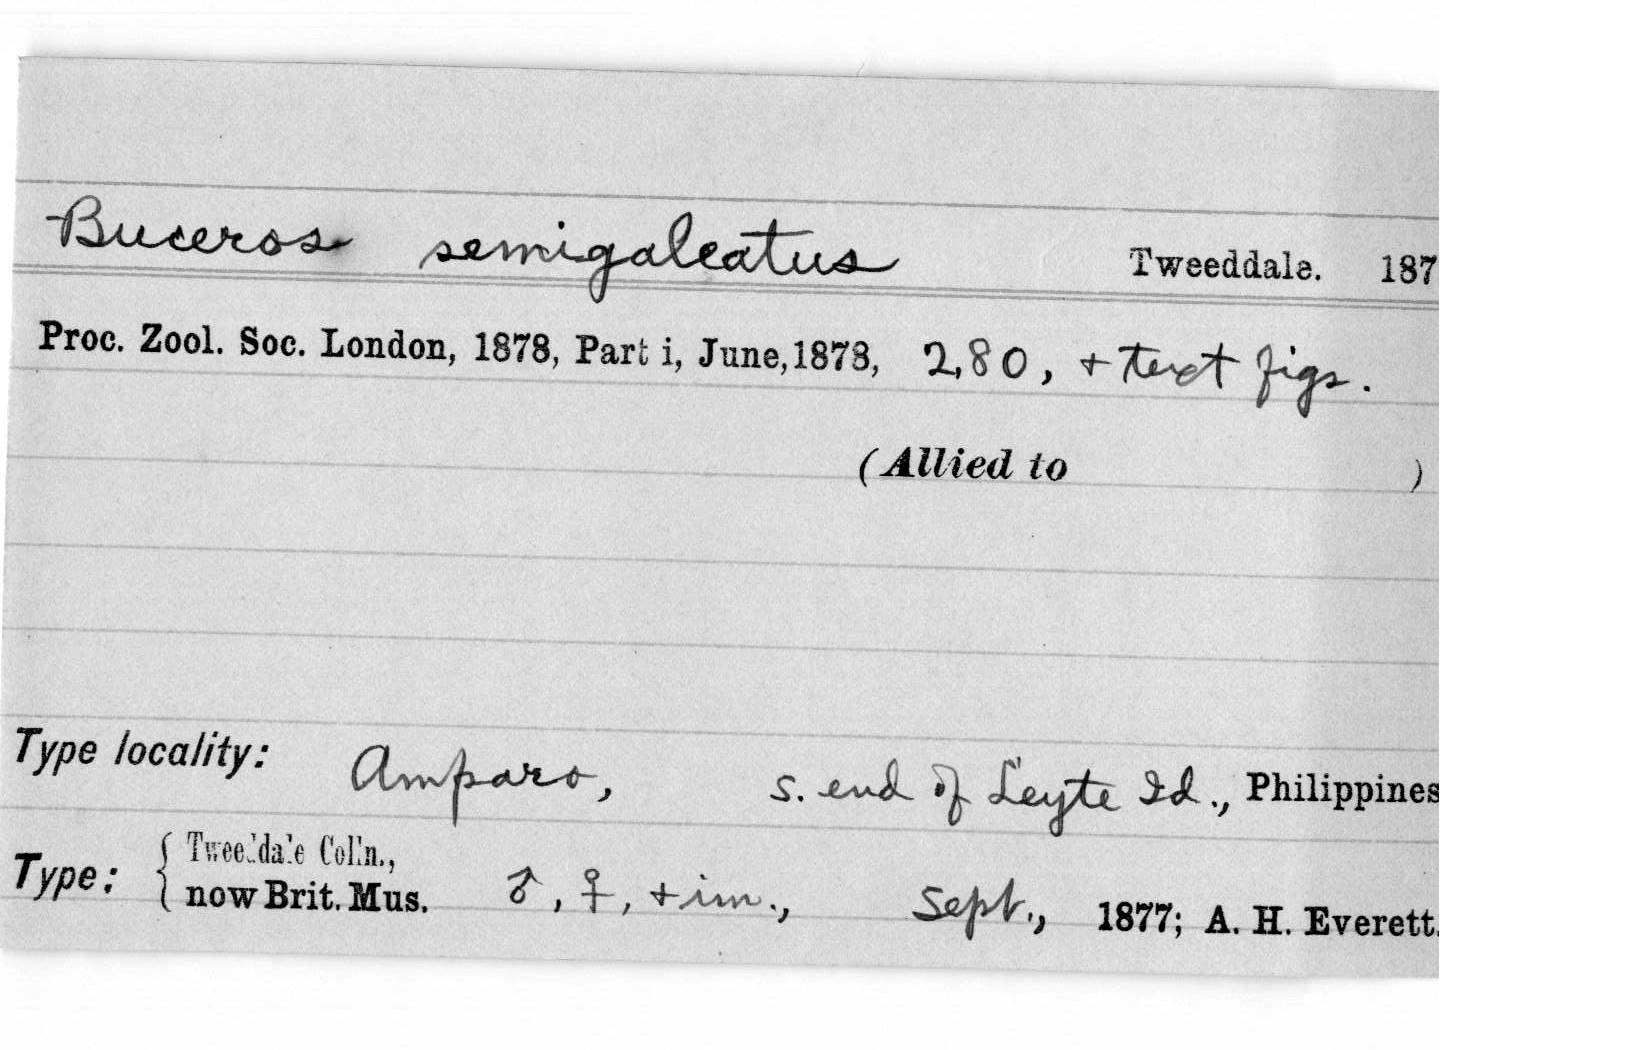 Buceros semigaleatus Tweeddale. 187
Proc. Zool. Soc. London, 1878, Part i, June, 1878, 280, + text figs.
(Allied to )
Type locality: Amparo, s. end of Leyte Id., Philippines
Type: { Tweeddale Coll'n.,
now Brit. Mus. ♂, ♀, + im., Sept., 1877; A. H. Everett.